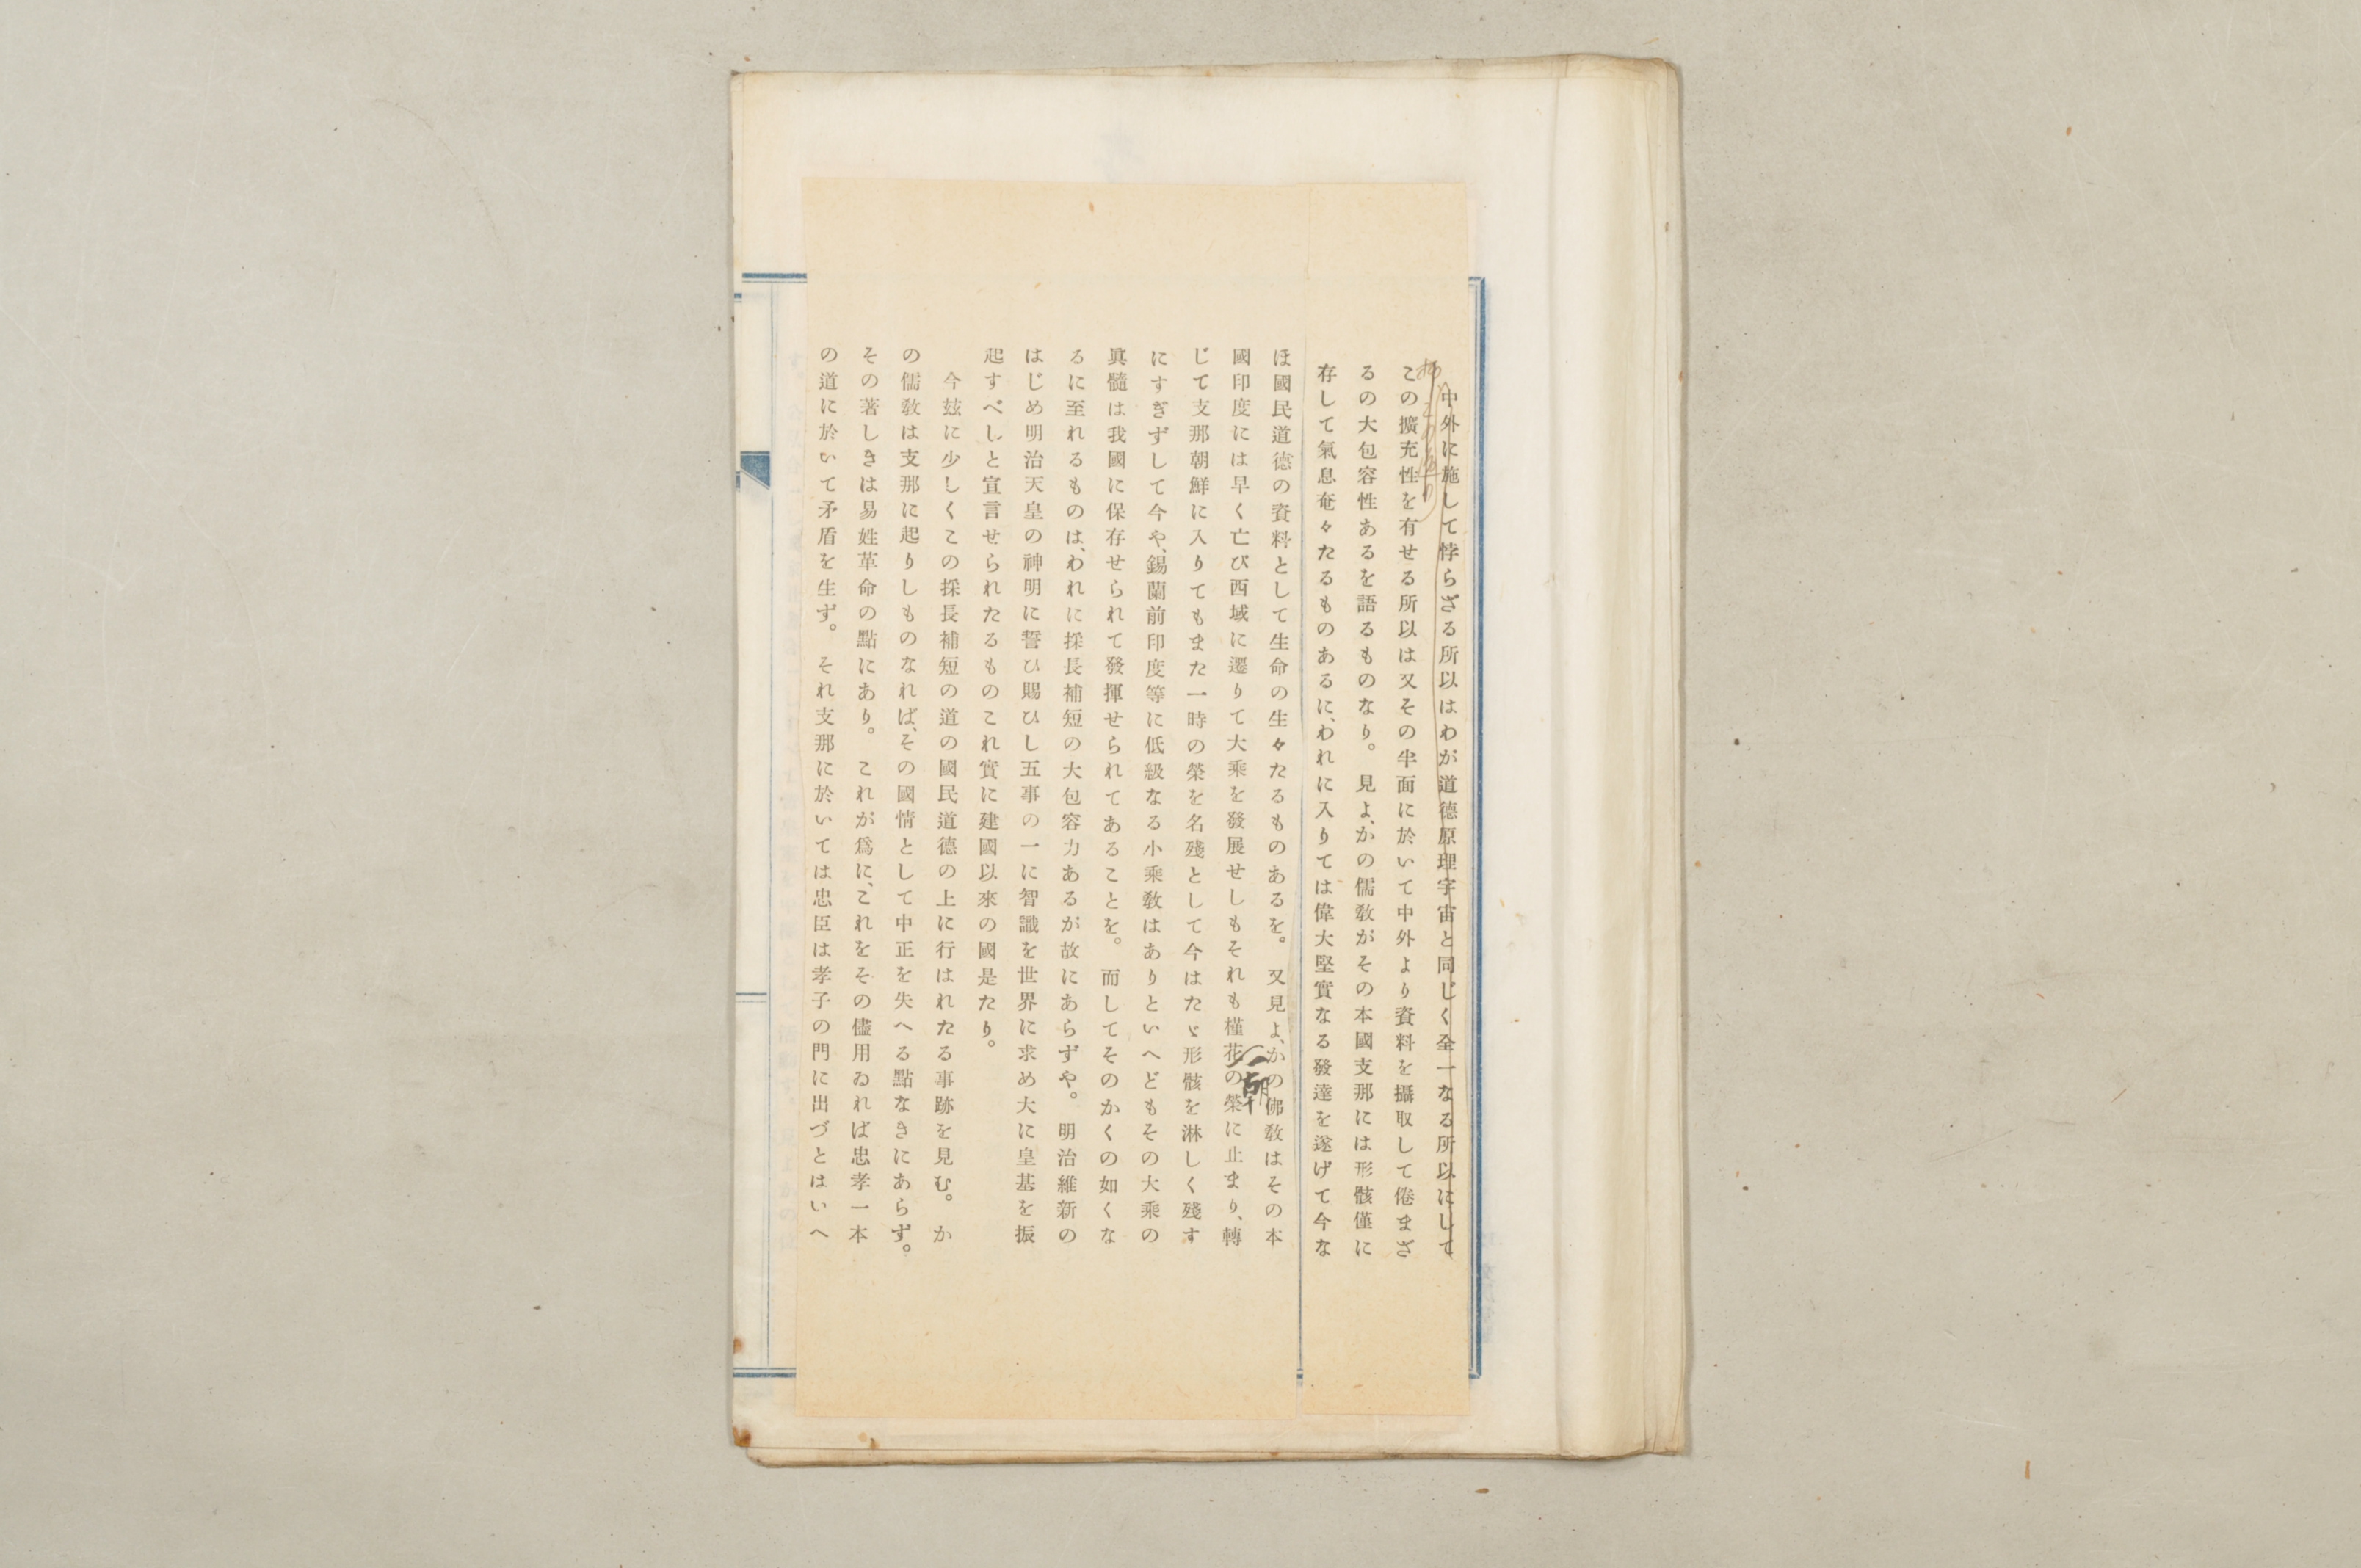 中外に施して悖らざる所以はわが道德原理宇宙と同じく全一なる所以にして
この擴充性を有せる所以は又その半面に於いて中外より資料を攝取して倦まざ
るの大包容性あるを語るものなり。見よ、かの儒敎がその本國支那には形骸僅に
存して氣息奄々たるものあるに、われに入りては偉大堅實なる發達を遂げて今な
ほ國民道德の資料として生命の生々たるものあるを。又見よ、かの佛敎はその本
國印度には早く亡び西域に遷りて大乘を發展せしもそれも槿花の榮に止まり、轉
一朝
じて支那朝鮮に入りてもまた一時の榮を名殘として今はたゞ形骸を淋しく殘す
にすぎずして今や、錫蘭前印度等に低級なる小乘敎はありといへどもその大乘の
眞髓は我國に保存せられて發揮せられてあることを。而してそのかくの如くな
るに至れるものは、われに採長補短の大包容力あるが故にあらずや。明治維新の
はじめ明治天皇の神明に誓ひ賜ひし五事の一に智識を世界に求め大に皇基を振
起すべしと宣言せられたるものこれ實に建國以來の國是たり。
今玆に少しくこの採長補短の道の國民道德の上に行はれたる事跡を見む。か
の儒敎は支那に起りしものなれば、その國情として中正を失へる點なきにあらず。
その著しきは易姓革命の點にあり。これが爲に、これをその儘用ゐれば忠孝一本
の道に於いて矛盾を生ず。それ支那に於いては忠臣は孝子の門に出づとはいへ